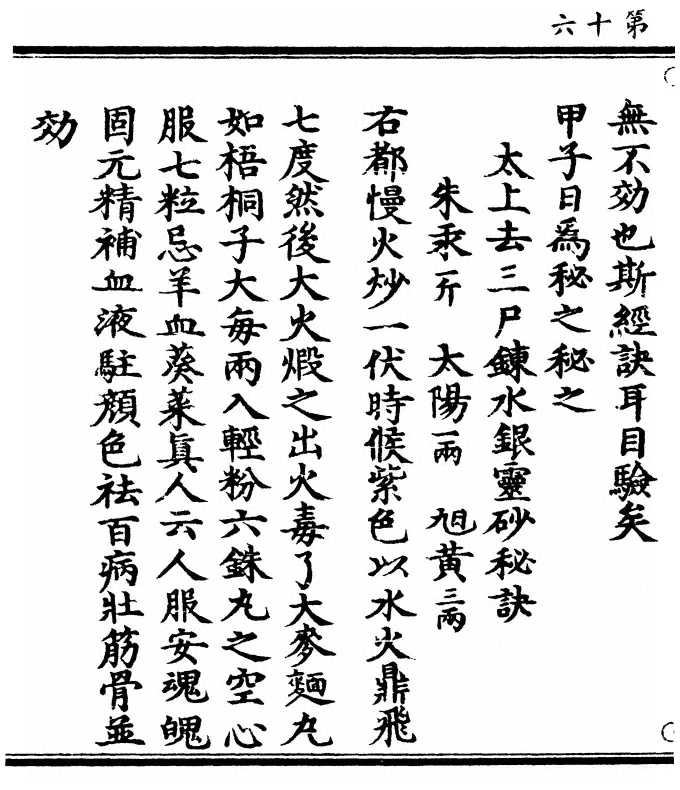 第十六
無不効也斯經訣耳目驗矣
甲子日爲秘之秘之
太上去三尸鍊水銀靈砂秘訣
朱汞一斤　太陽一兩　旭黃三兩
右都慢火炒一伏時候紫色以水火鼎飛
七度然後大火煆之出火毒了大麥麵丸
如梧桐子大每兩入輕粉六銖丸之空心
服七粒忌羊血葵菜眞人云人服安魂魄
固元精補血液駐顔色祛百病壯筋骨並
効